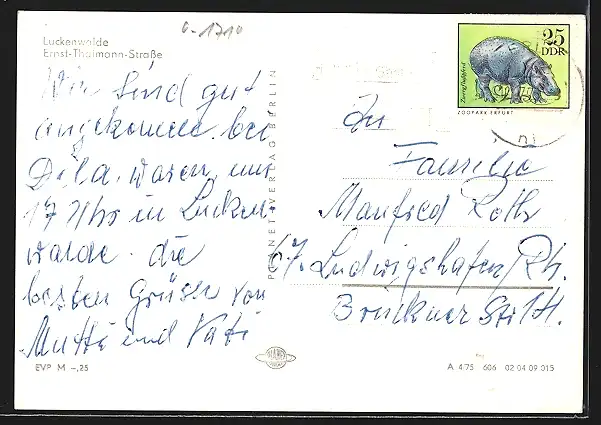 6-1710
Luckenwalde
Ernst-Thälmann-Straße
Wir sind gut
angekommen. bei
Dila. waren um
17 Uhr in Lucken-
walde. die
besten Grüsse von
Mutti und Vati
EVP M -,25
PLANET-VERLAG BERLIN
PLANET
25
DDR
Zwergflußpferd
ZOOPARK ERFURT
An
Familie
Manfred Roth
67. Ludwigshafen/Rh.
Bruckner Str.
A 4/75 606 02 04 09 015